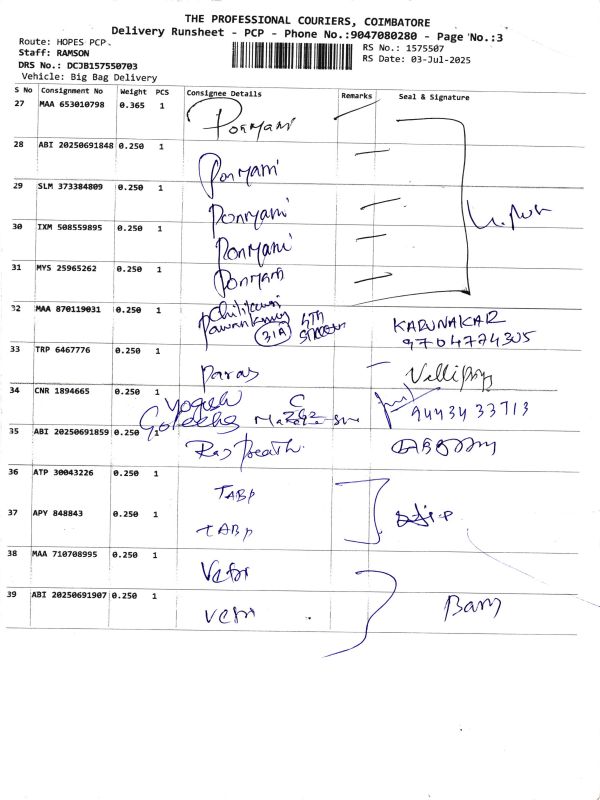 THE PROFESSIONAL COURIERS, COIMBATORE
Delivery Runsheet - PCP - Phone No.:9047080280 - Page No.:3
Route: HOPES PCP.
RS No.: 1575507
Staff: RAMSON
RS Date: 03-Jul-2025
DRS No.: DCJB157550703
Vehicle: Big Bag Delivery
S No Consignment No Weight PCS Consignee Details Remarks Seal & Signature
27 MAA 653010798 0.365 1 Ponmani
28 ABI 20250691848 0.250 1 Ponmani
29 SLM 373384809 0.250 1 Ponmani
30 IXM 508559895 0.250 1 Ponmani
31 MYS 25965262 0.250 1 Ponmani
32 MAA 870119031 0.250 1
31A 4th Street
KARUNAKAR
9704774305
33 TRP 6467776 0.250 1 Paras
34 CNR 1894665 0.250 1 Yogesh
9443433713
35 ABI 20250691859 0.250 1
36 ATP 30043226 0.250 1 TABP
37 APY 848843 0.250 1 TABP
38 MAA 710708995 0.250 1
39 ABI 20250691907 0.250 1